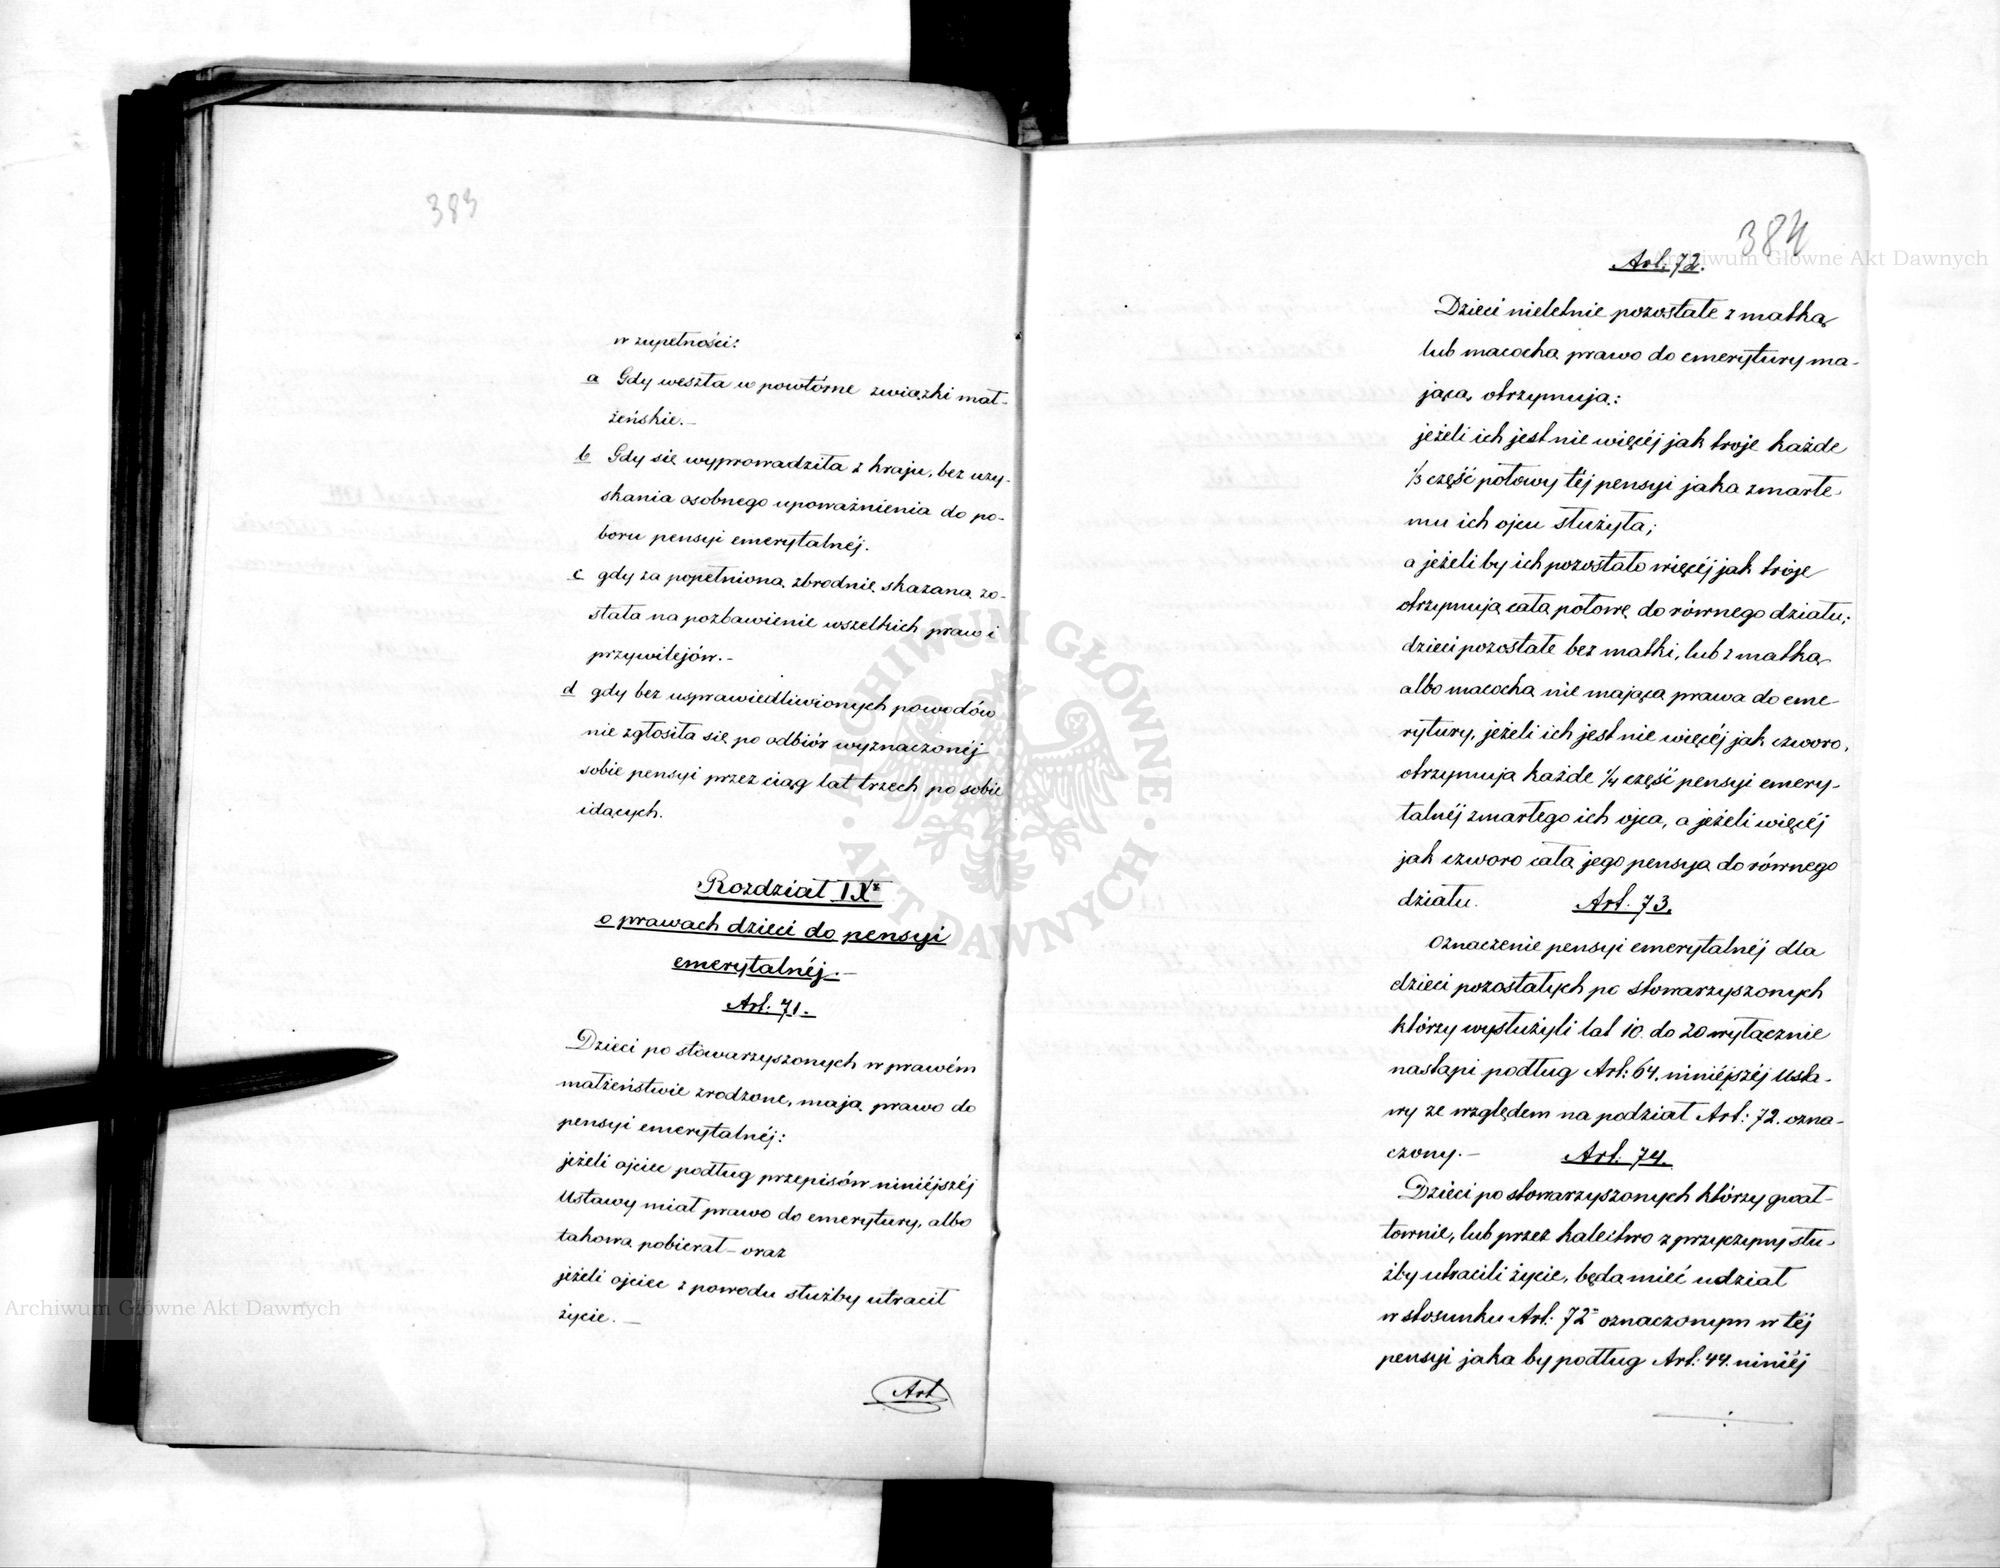 383
w zupełności:
a Gdy weszła w powtórne związki mał-
żeńskie.-
b Gdy się wyprowadziła z kraju, bez uzy-
skania osobnego upoważnienia do po-
boru pensyi emerytalnéj.
c gdy za popełnioną zbrodnię skazaną zo-
stała na pozbawienie wszelkich praw i
przywilejów.-
d gdy bez usprawiedliwionych powodów
nie zgłosiła się po odbiór wyznaczonéj
sobie pensyi przez ciąg lat trzech po sobie
idących.
Rozdział IX
o prawach dzieci do pensyi
emerytalnéj.-
Art: 71.
Dzieci po stowarzyszonych w prawém
małżeństwie zrodzone, mają prawo do
pensyi emerytalnéj:
jeżeli ojciec podług przepisów niniéjszéj
Ustawy miał prawo do emerytury, albo
takową pobierał - oraz
jeżeli ojciec z powodu służby utracił
życie.-
Art
384
Art. 72.
Dzieci nieletnie pozostałe z matką
lub macochą prawo do emerytury ma-
jącą, otrzymują:
jeżeli ich jest nie więcéj jak troje każde
1/3 część połowy téj pensyi jaka zmarłe-
mu ich ojcu służyła;
a jeżeli by ich pozostało więcéj jak troje
otrzymują całą połowę do równego działu;
dzieci pozostałe bez matki, lub z matką
albo macochą nie mającą prawa do eme-
rytury, jeżeli ich jest nie więcéj jak czworo,
otrzymują każde 1/4 część pensyi emery-
talnéj zmarłego ich ojca, a jeżeli więcéj
jak czworo całą jego pensyą do równego
działu. Art. 73.
Oznaczenie pensyi emerytalnéj dla
dzieci pozostałych po stowarzyszonych
którzy wysłużyli lat 10. do 20 wyłącznie
nastąpi podług Art: 64. niniéjszéj Usta-
wy ze względem na podział Art: 72. ozna-
czony.- Art. 74.
Dzieci po stowarzyszonych którzy gwał-
townie, lub przez kalectwo z przyczyny słu-
żby utracili życie, będą mieć udział
w stosunku Art: 72 oznaczonym w téj
pensyi jaka by podług Art: 44. niniéj
Archiwum Główne Akt Dawnych
Archiwum Główne Akt Dawnych
ARCHIWUM GŁÓWNE · AKT DAWNYCH ·